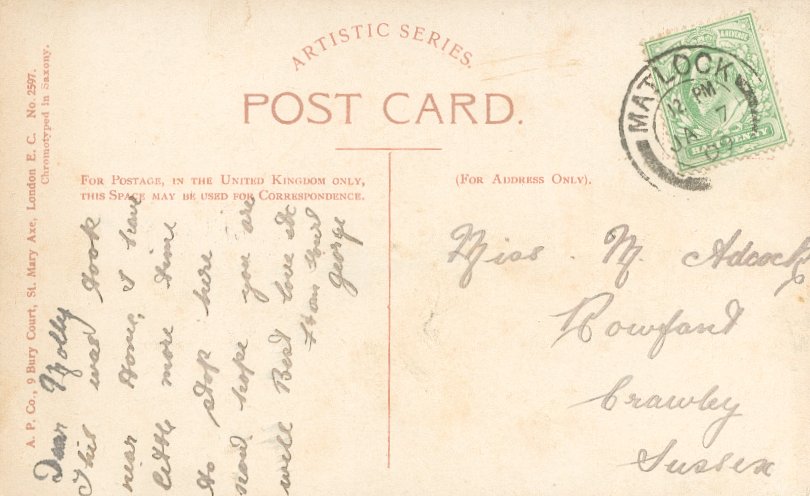 ARTISTIC SERIES.
POST CARD.
For Postage, in the United Kingdom only,
this Space may be used for Correspondence.
(For Address Only).
A. P. Co., 9 Bury Court, St. Mary Axe, London E. C. No. 2597.
Chromotyped in Saxony.
& REVENUE
HALFPENNY
MATLOCK
12 PM
JA 7
Dear Molly
This was took
near Dover, I have
little more time
to stop here
now hope you are
well Best love etc
from Yours
George
Miss. M. Adcock
Rowfant
Crawley
Sussex